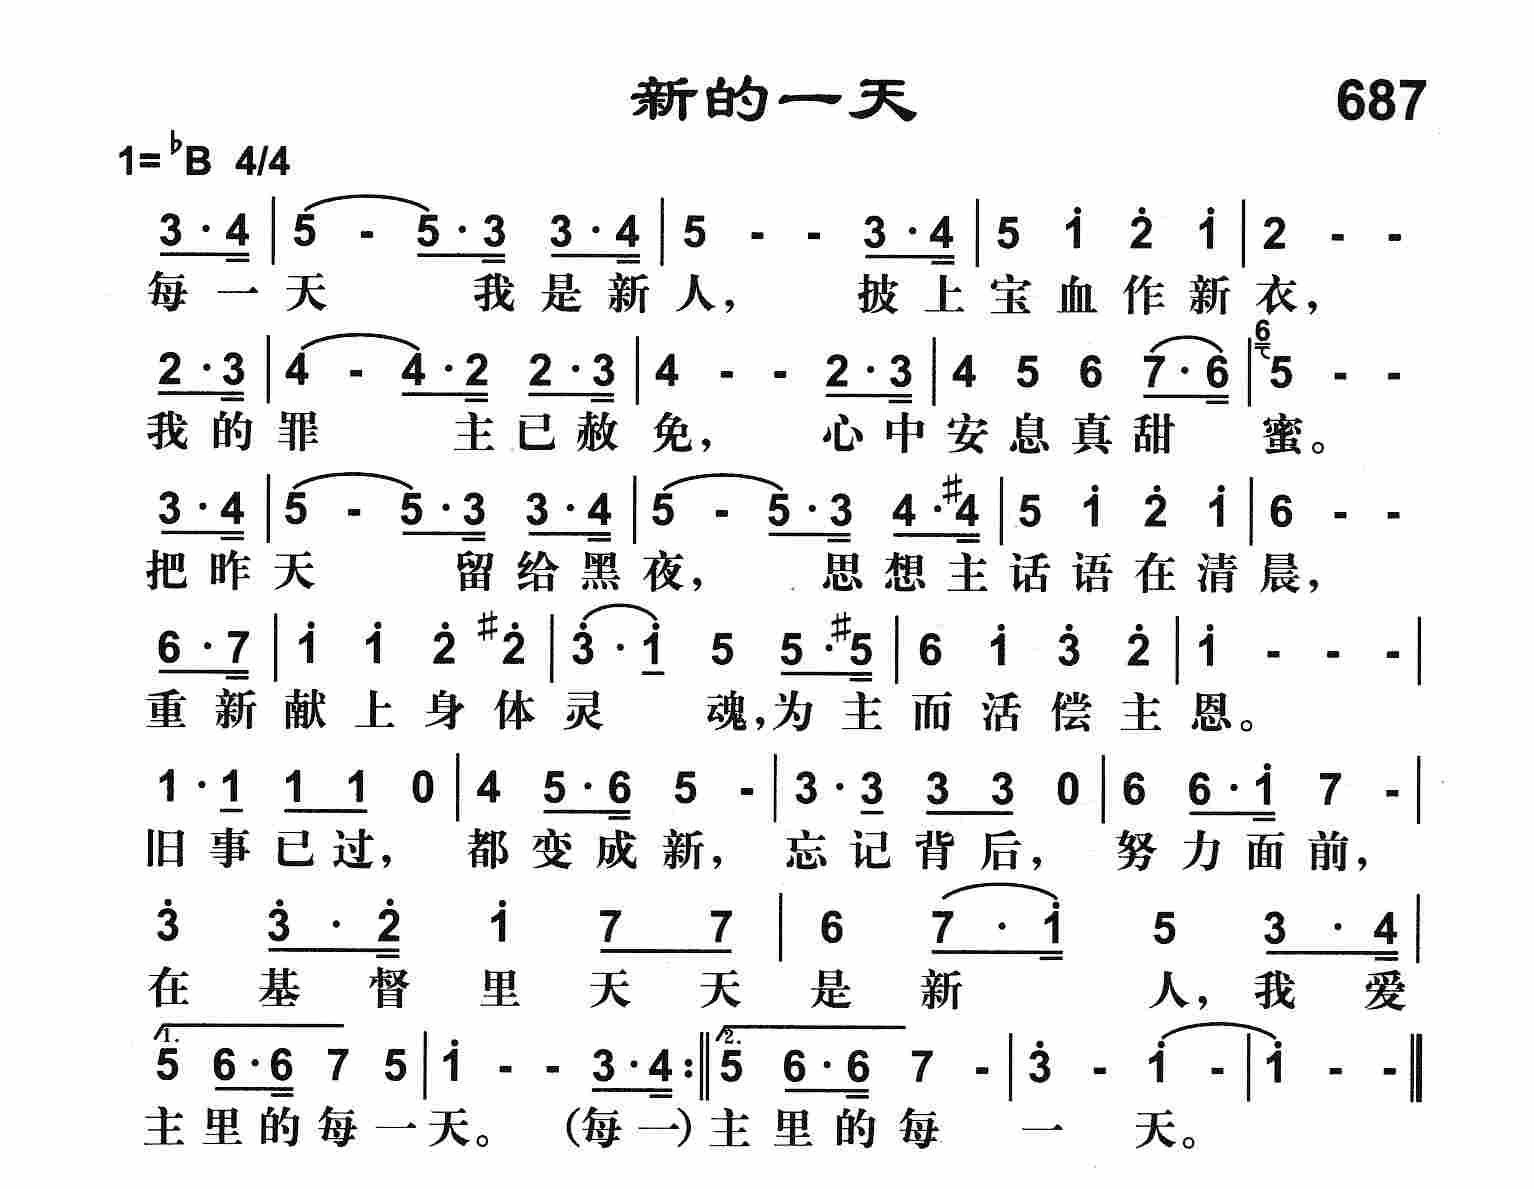 新的一天 687
1=♭B 4/4
3·4 | 5 - 5·3 3·4 | 5 - - 3·4 | 5 1̇ 2̇ 1̇ | 2 - -
每一天 我是新人， 披上宝血作新衣，
6
2·3 | 4 - 4·2 2·3 | 4 - - 2·3 | 4 5 6 7·6 | 5 - -
我的罪 主已赦免， 心中安息真甜 蜜。
3·4 | 5 - 5·3 3·4 | 5 - 5·3 4·#4 | 5 1̇ 2̇ 1̇ | 6 - -
把昨天 留给黑夜， 思想主话语在清晨，
6·7 | 1̇ 1̇ 2̇ #2̇ | 3̇·1̇ 5 5·#5 | 6 1̇ 3̇ 2̇ | 1̇ - - - |
重新献上身体灵 魂，为主而活偿主恩。
1·1 1 1 0 | 4 5·6 5 - | 3·3 3 3 0 | 6 6·1̇ 7 - |
旧事已过， 都变成新， 忘记背后， 努力面前，
3̇ 3̇·2̇ 1̇ 7 7 | 6 7·1̇ 5 3·4 |
在基督里天天是新 人，我爱
1. 2.
5 6·6 7 5 | 1̇ - - 3·4 :‖ 5 6·6 7 - | 3̇ - 1̇ - | 1̇ - - ‖
主里的每一天。 (每一)主里的每 一 天。